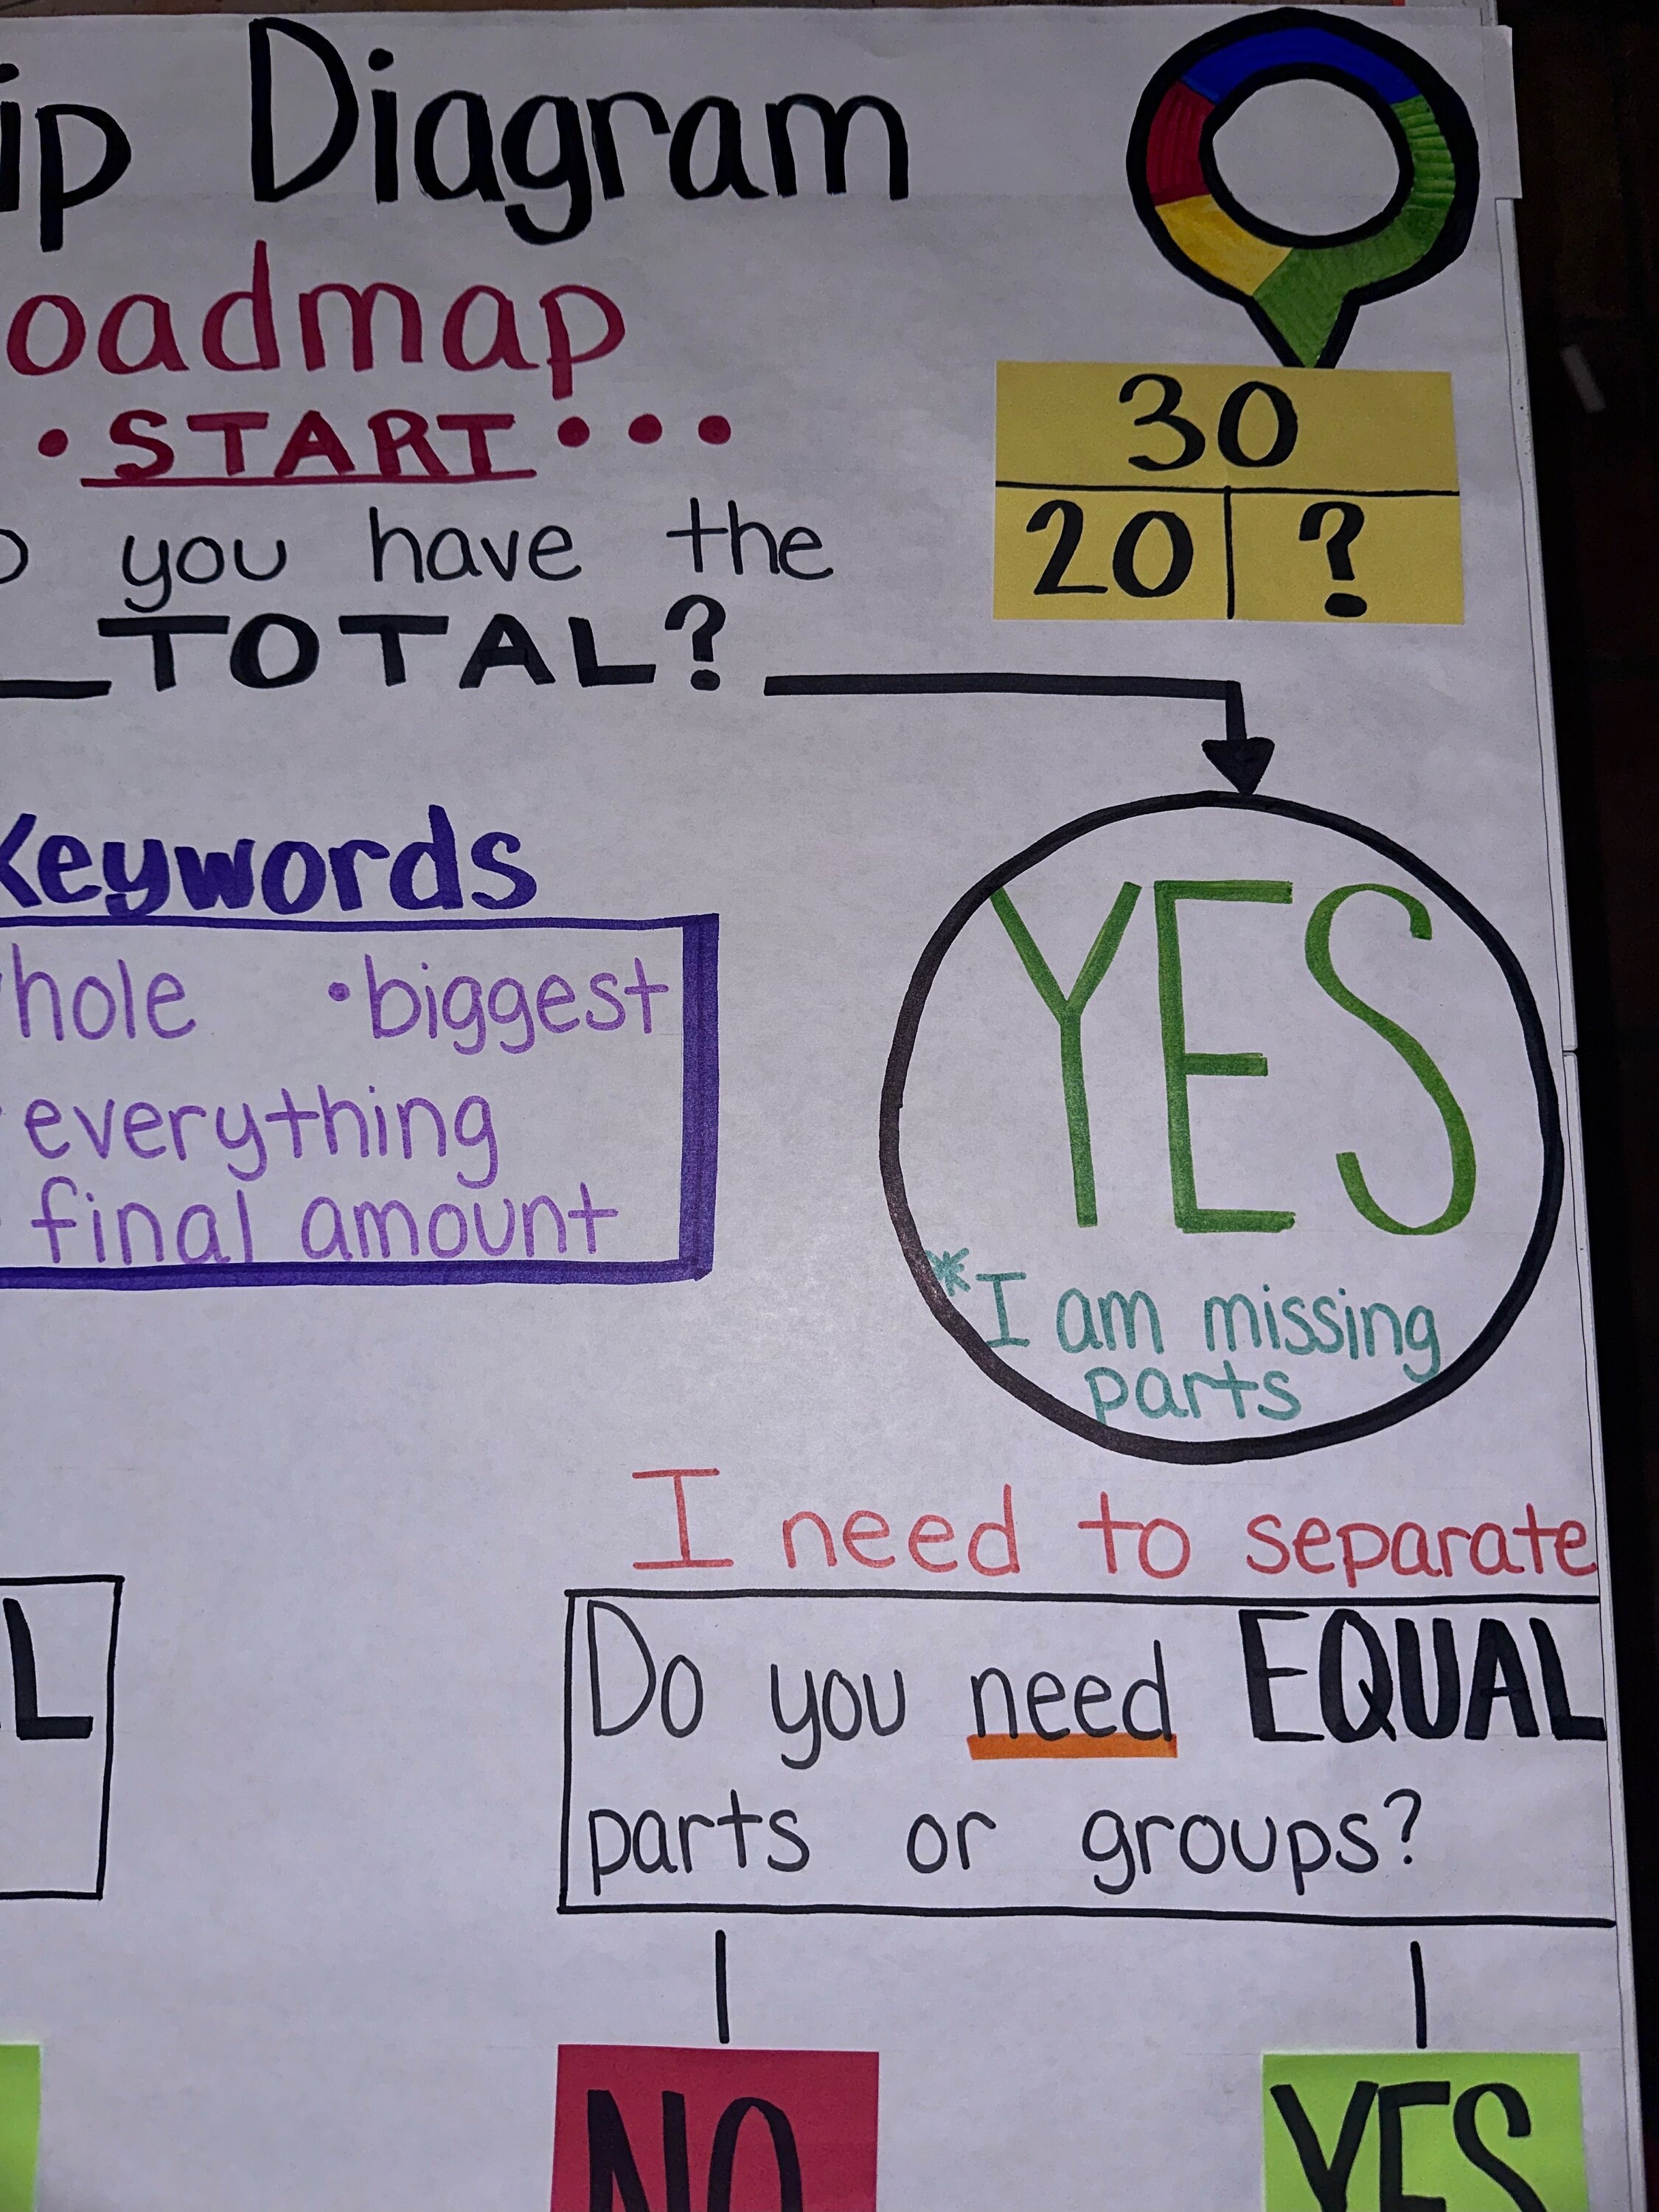 ip Diagram
oadmap
• START • • •
30
20 ?
you have the
TOTAL?
Keywords
hole • biggest
everything
final amount
YES
*I am missing
parts
I need to separate
L
Do you need EQUAL
parts or groups?
NO
YES